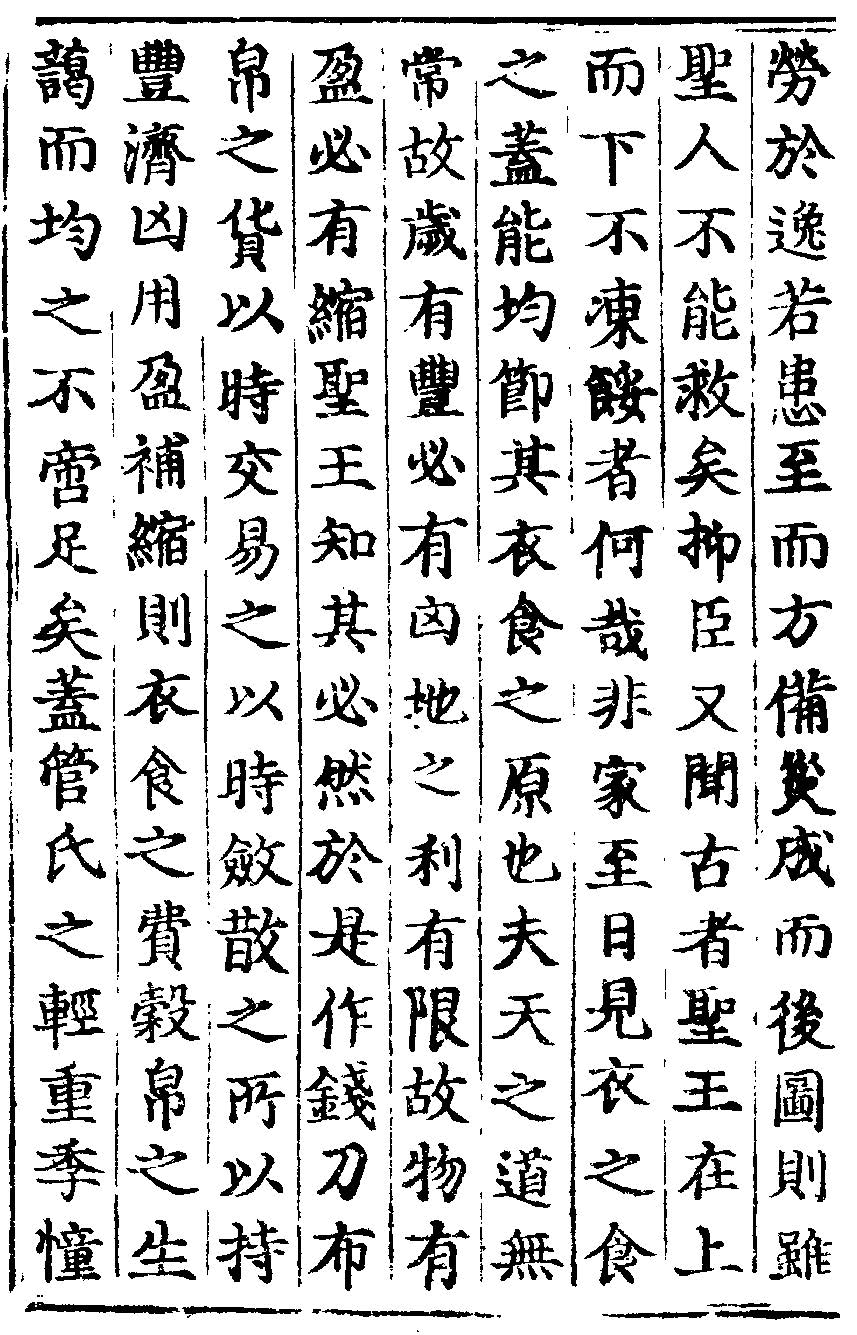 勞於逸若患至而方備災成而後圖則雖
聖人不能救矣抑臣又聞古者聖王在上
而下不凍餒者何哉非家至日見衣之食
之蓋能均節其衣食之原也夫天之道無
常故歲有豐必有凶地之利有限故物有
盈必有縮聖王知其必然於是作錢刀布
帛之貨以時交易之以時斂散之所以持
豐濟凶用盈補縮則衣食之費穀帛之生
譪而均之不啻足矣蓋管氏之輕重李憧